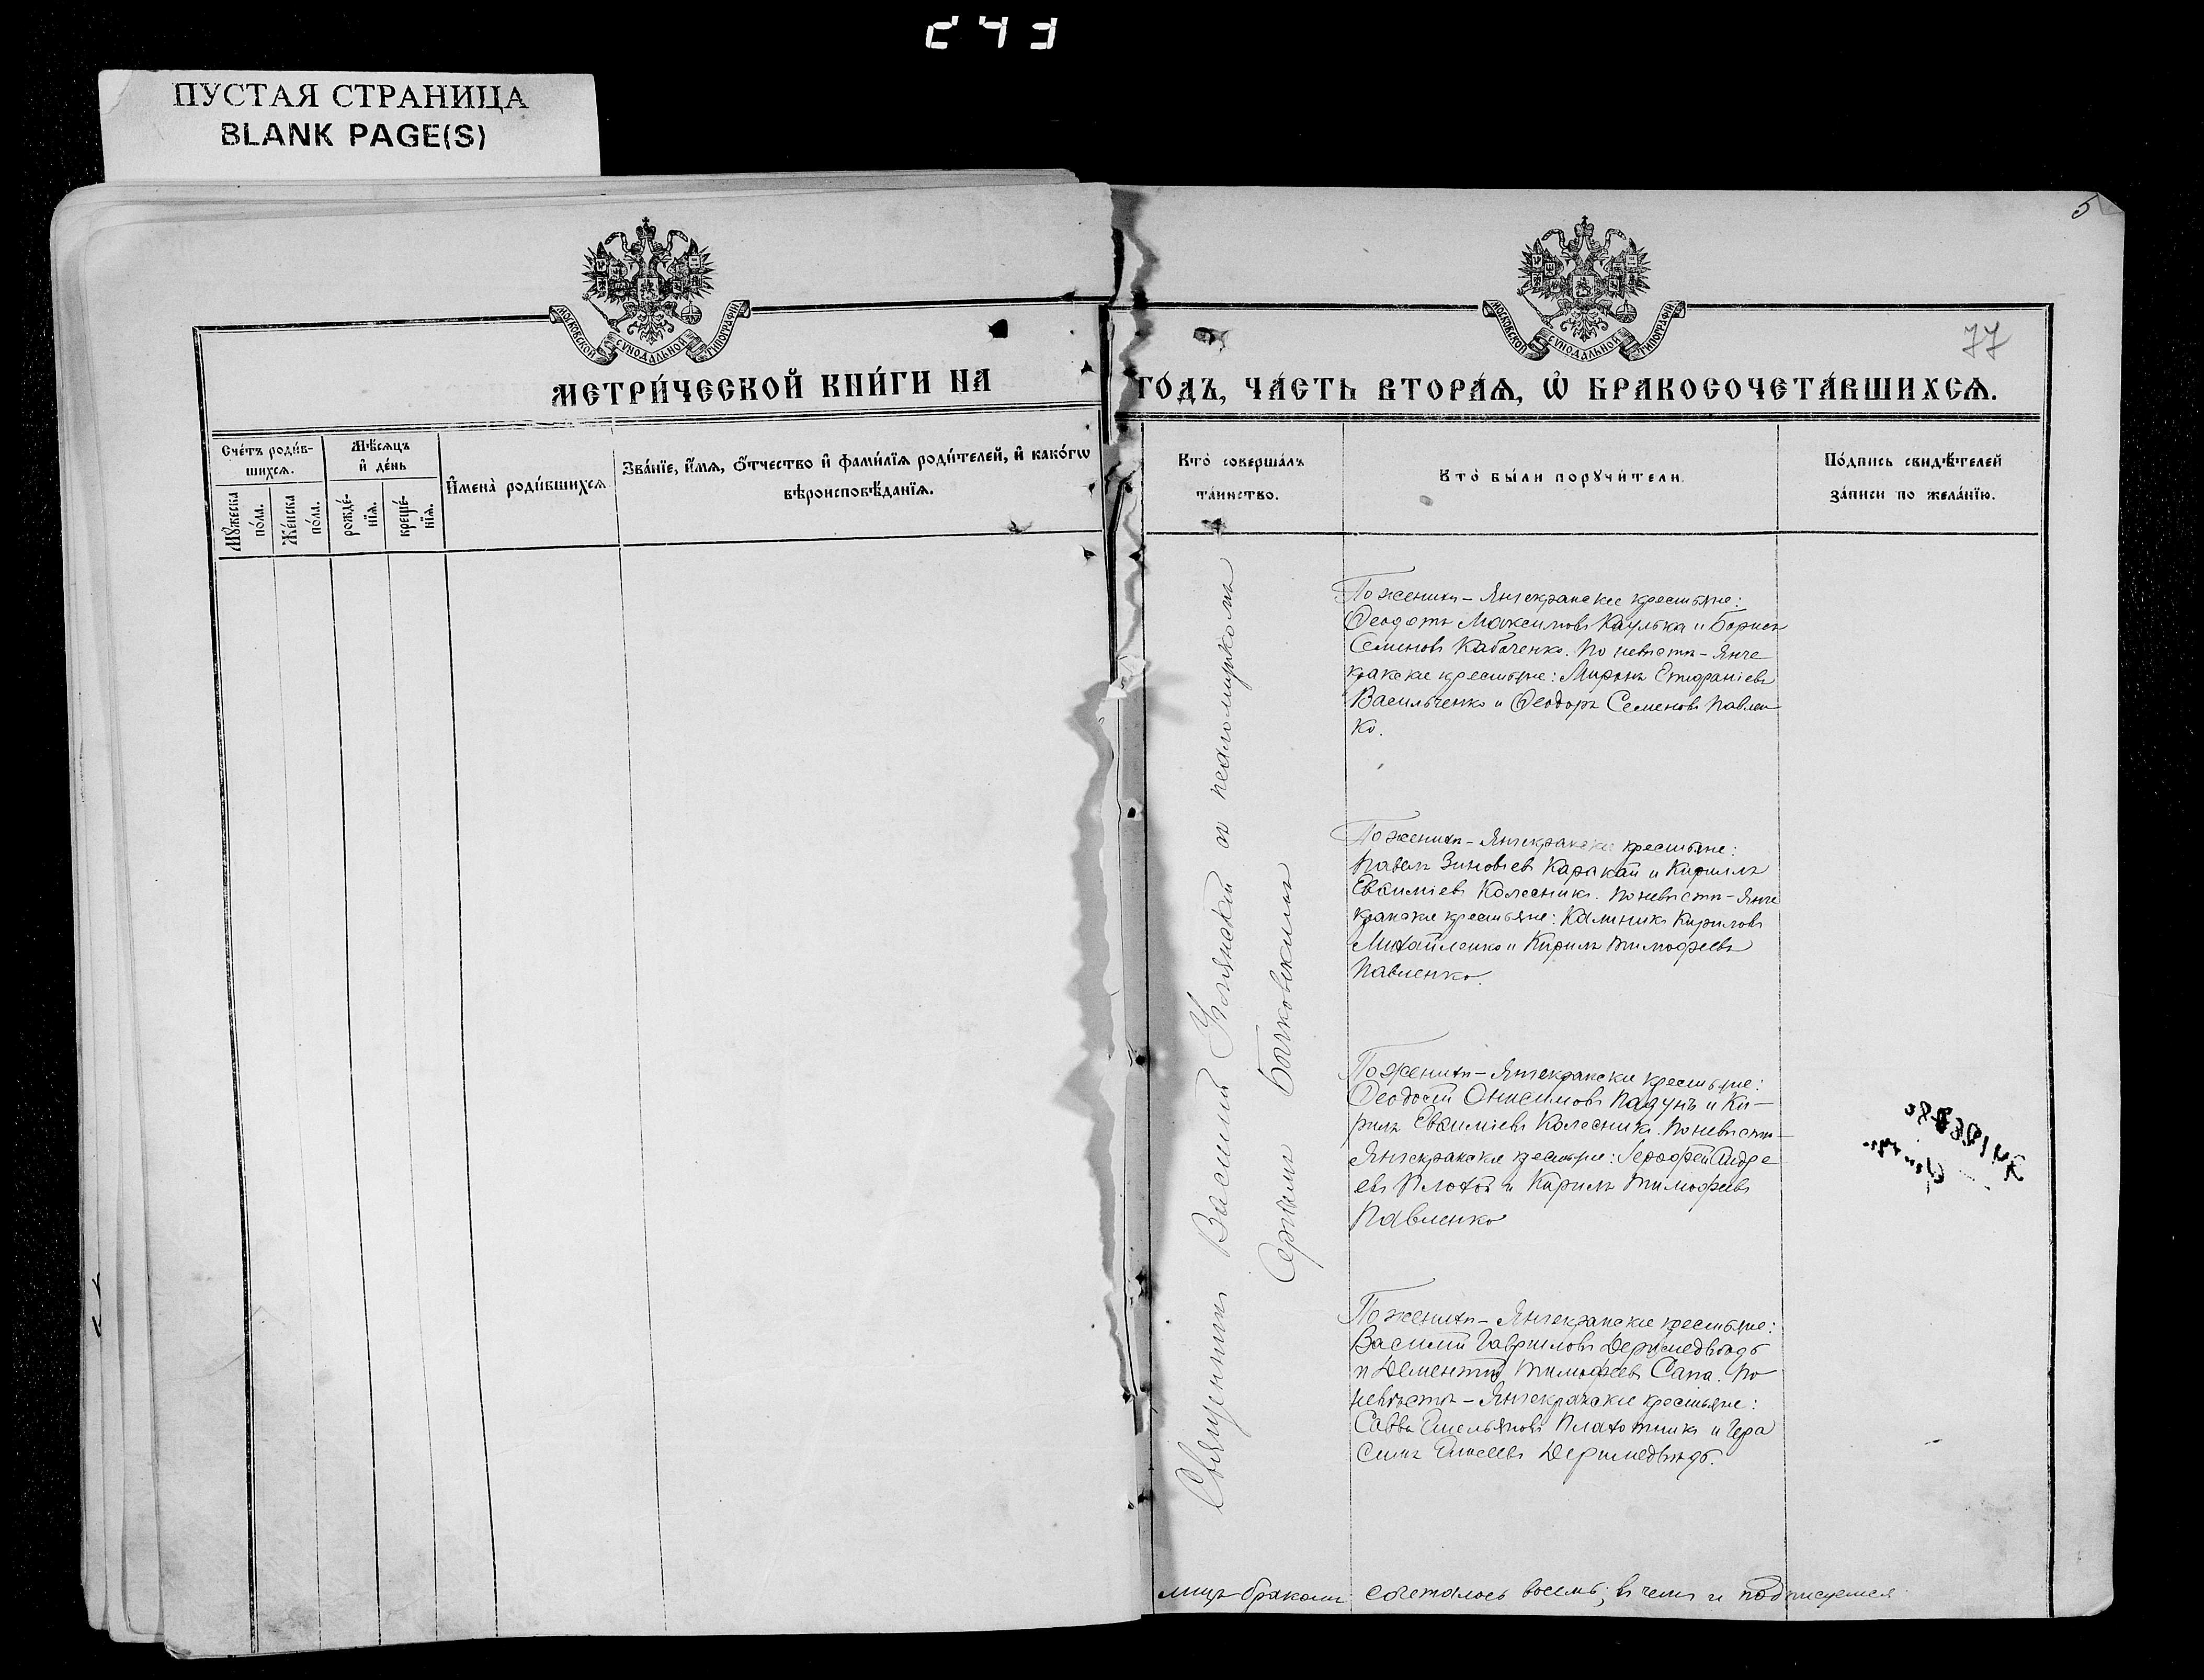 243
ПУСТАЯ СТРАНИЦА
BLANK PAGE(S)
5
МОСКОВСКОЙ СѴНОДАЛЬНОЙ ТИПОГРАФІИ
МОСКОВСКОЙ СѴНОДАЛЬНОЙ ТИПОГРАФІИ
77
МЕТРИ́ЧЕСКОЙ КНИ́ГИ НА
ГО́ДЪ, ЧА́СТЬ ВТОРА́Ѧ, Ѡ БРАКОСОЧЕТА́ВШИХСѦ.
Сче́тъ роди́в-
шихсѧ.
Мѣ́сѧцъ
и҆ де́нь
Мꙋ́жеска
по́ла.
Же́нска
по́ла.
рожде́-
нїѧ.
креще́-
нїѧ.
И҆мена̀ роди́вшихсѧ
Зва́нїе, и҆́мѧ, ѻ҆́тчество и҆ фами́лїѧ роди́телей, и҆ како́гѡ
вѣроисповѣ́данїѧ.
Кто̀ соверша́лъ
та́инство.
Кто̀ бы́ли порꙋчи́тели.
По́дпись свидѣ́телей
за́писи по жела́нїю.
Священникъ Василій съ псаломщикомъ
Сергіемъ Бычковскимъ
По женихѣ – Янчекракскіе крестьяне:
Ѳеодотъ Максимовъ Каулька и Борисъ
Семеновъ Кабаченко. По невѣстѣ – Янче
кракскіе крестьяне: Миронъ Епифаніевъ
Васильченко и Ѳеодоръ Семеновъ Павлен
ко.
По женихѣ – Янчекракскіе крестьяне:
Павелъ Зиновіевъ Каракай и Кириллъ
Евѳиміевъ Колесникъ. По невѣстѣ – Янче
кракскіе крестьяне: Калиникъ Кириловъ
Михайленко и Кирилъ Тимофеевъ
Павленко.
По женихѣ – Янчекракскіе крестьяне:
Ѳеодосій Онисимовъ Падунъ и Ки–
рилъ Евѳиміевъ Колесникъ. По невѣстѣ –
Янчекракскіе крестьяне: Іероѳей Андре
евъ Плохой и Кирилъ Тимофеевъ
Павленко
По женихѣ – Янчекракскіе крестьяне:
Василій Гавриловъ Деримедвѣдь
и Дементій Тимофеевъ Сапа. По
невѣстѣ – Янчекракскіе крестьяне:
Савва Емельяновъ Плахотникъ и Гера
симъ Деримедвѣдь.
лицъ бракомъ сочеталось восемь; въ чемъ и подписуемся